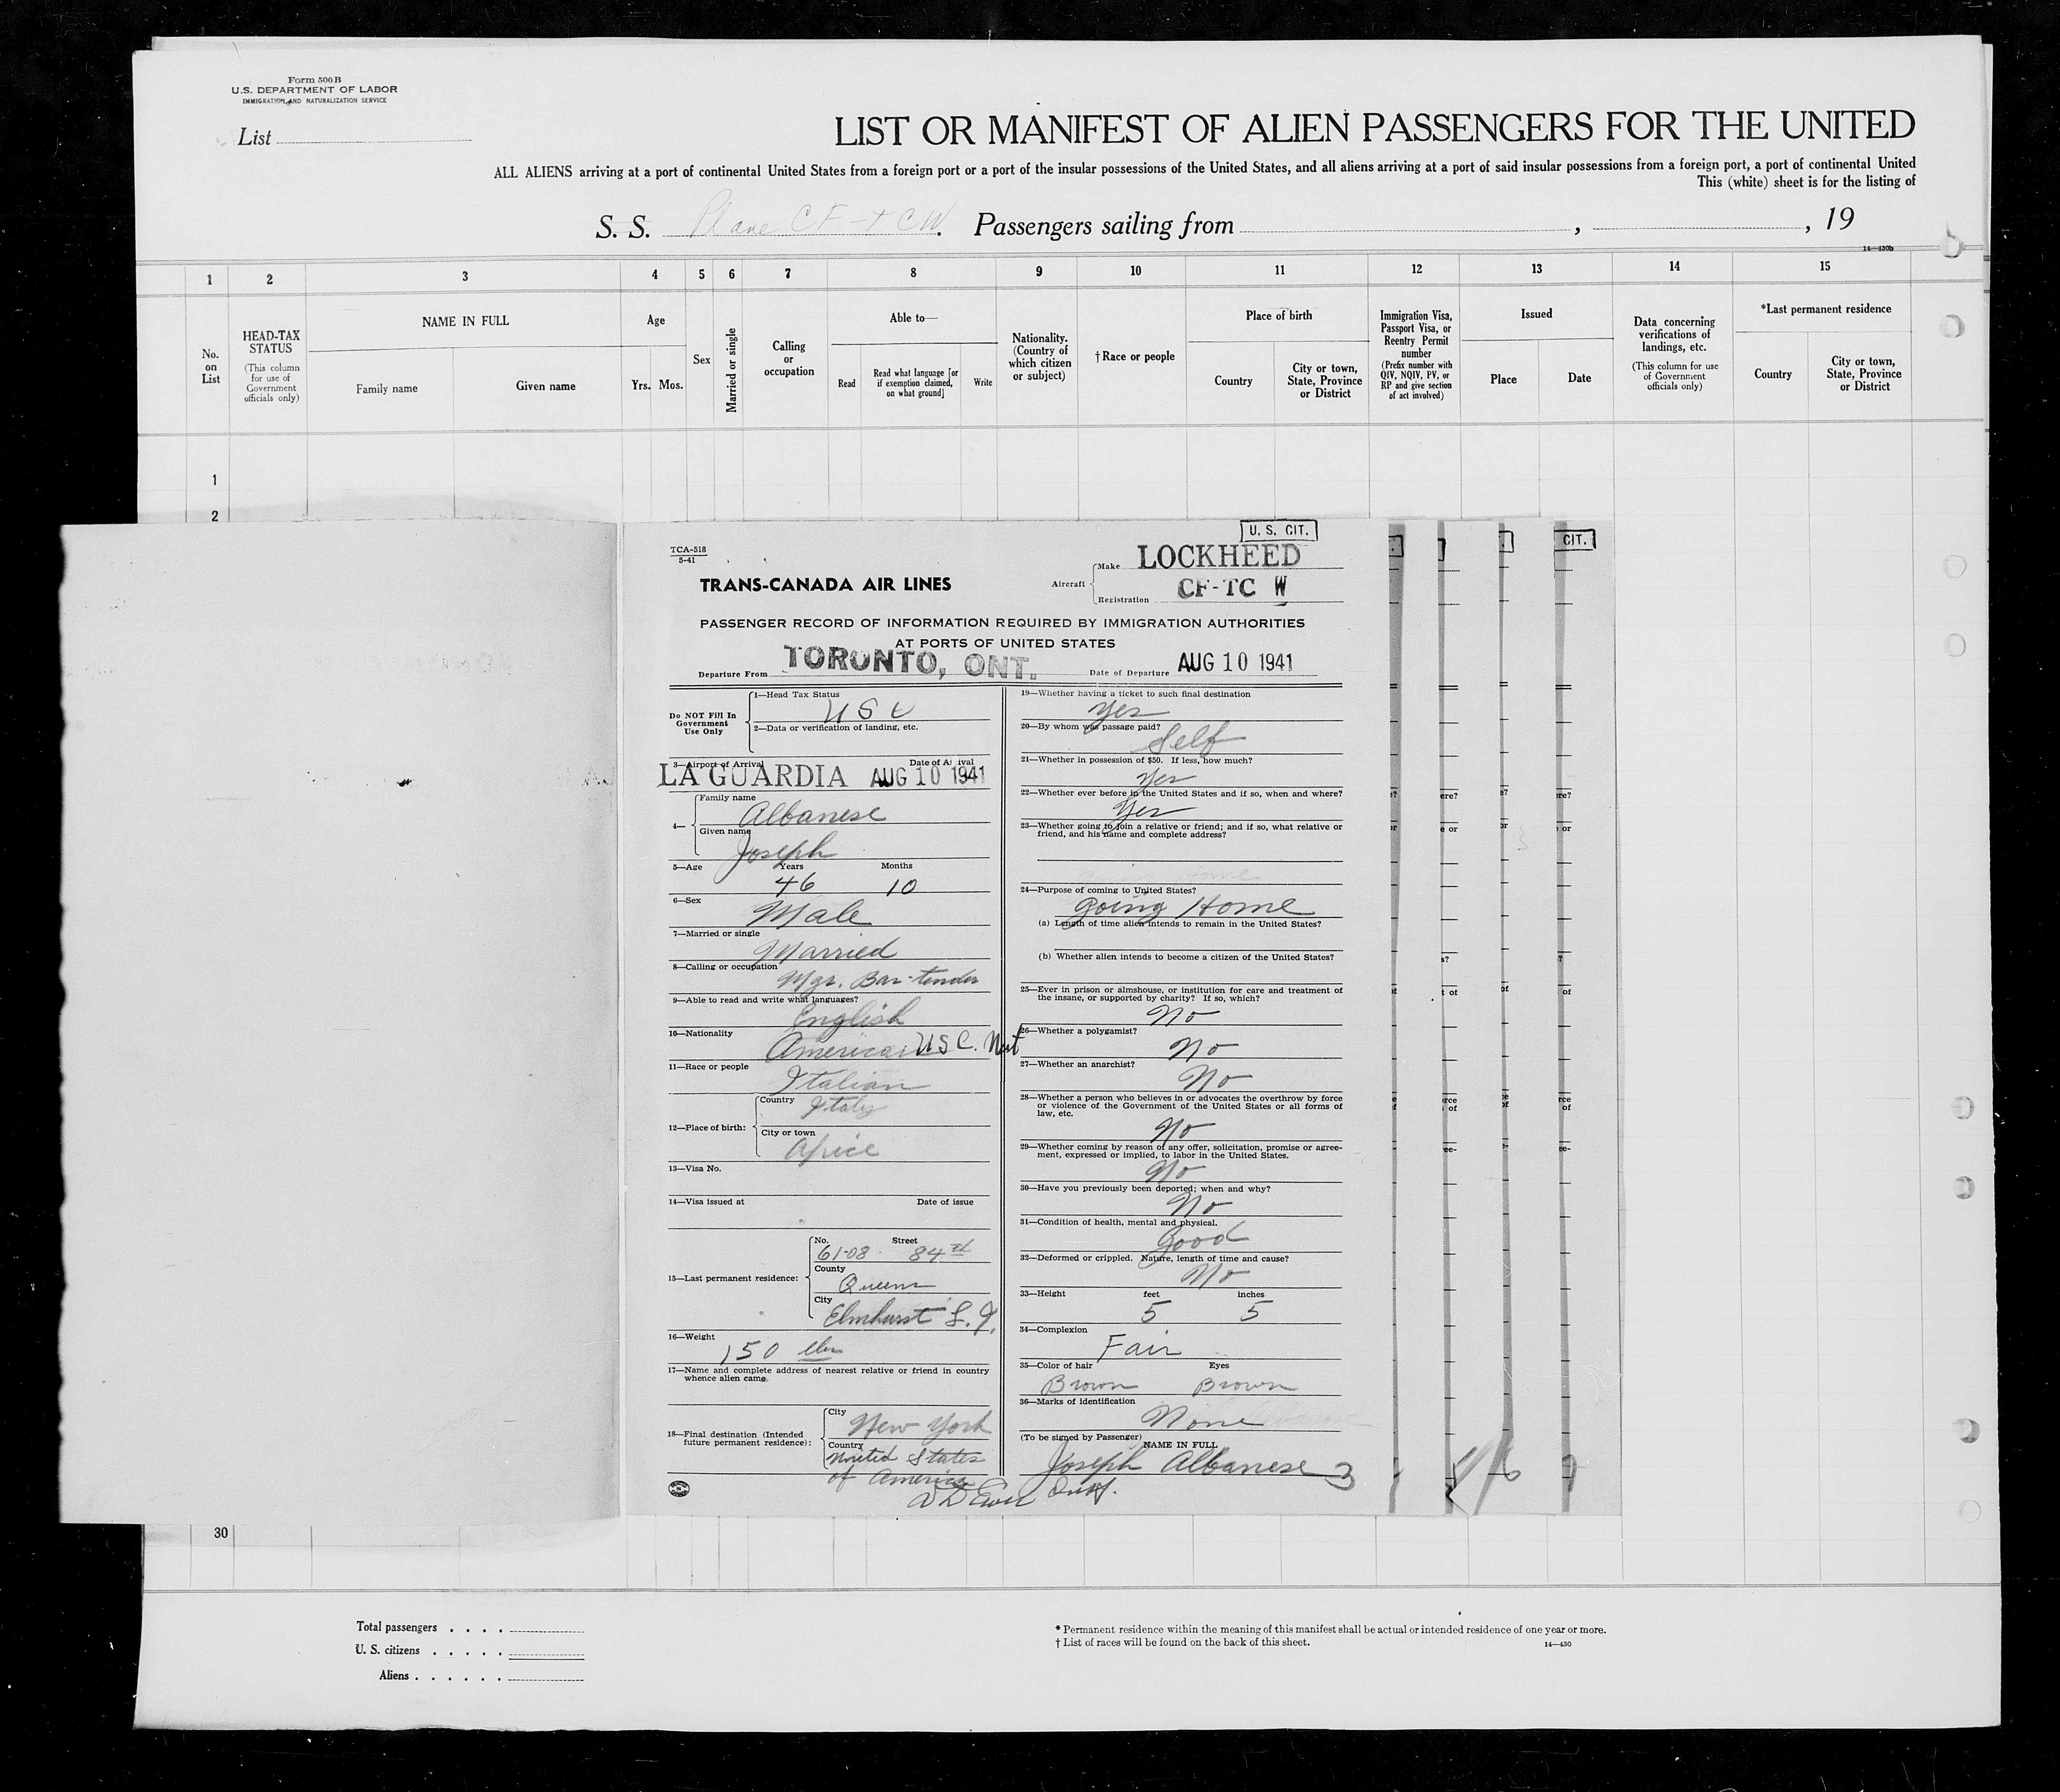 Form 500 B
U.S. DEPARTMENT OF LABOR
IMMIGRATION AND NATURALIZATION SERVICE
List
LIST OR MANIFEST OF ALIEN PASSENGERS FOR THE UNITED
ALL ALIENS arriving at a port of continental United States from a foreign port or a port of the insular possessions of the United States, and all aliens arriving at a port of said insular possessions from a foreign port, a port of continental United
This (white) sheet is for the listing of
S. S. Plane CF-TCW. Passengers sailing from , , 19
14—430b
1 2 3 4 5 6 7 8 9 10 11 12 13 14 15
No. on List
HEAD-TAX STATUS
(This column for use of Government officials only)
NAME IN FULL
Family name
Given name
Age
Yrs. Mos.
Sex
Married or single
Calling or occupation
Able to—
Read
Read what language [or if exemption claimed, on what ground]
Write
Nationality. (Country of which citizen or subject)
†Race or people
Place of birth
Country
City or town, State, Province or District
Immigration Visa, Passport Visa, or Reentry Permit number
(Prefix number with QIV, NQIV, PV, or RP and give section of act involved)
Issued
Place
Date
Data concerning verifications of landings, etc.
(This column for use of Government officials only)
*Last permanent residence
Country
City or town, State, Province or District
1
2
U. S. CIT.
CIT.
TCA-518
5-41
TRANS-CANADA AIR LINES
Aircraft
Make LOCKHEED
Registration CF-TC W
PASSENGER RECORD OF INFORMATION REQUIRED BY IMMIGRATION AUTHORITIES
AT PORTS OF UNITED STATES
Departure From TORONTO, ONT. Date of Departure AUG 10 1941
Do NOT Fill In Government Use Only
1—Head Tax Status
USC
2—Data or verification of landing, etc.
3—Airport of Arrival Date of Arrival
LA GUARDIA AUG 10 1941
4—
Family name
Albanese
Given name
Joseph
5—Age Years Months
46 10
6—Sex
Male
7—Married or single
Married
8—Calling or occupation
Mgr. Bar-tender
9—Able to read and write what languages?
English
10—Nationality
American USC. Nat
11—Race or people
Italian
12—Place of birth:
Country
Italy
City or town
Apice
13—Visa No.
14—Visa issued at Date of issue
15—Last permanent residence:
No. Street
61-08 84th
County
Queens
City
Elmhurst L.I.
16—Weight
150 lbs
17—Name and complete address of nearest relative or friend in country
whence alien came.
18—Final destination (Intended
future permanent residence):
City
New York
Country
United States
of America
19—Whether having a ticket to such final destination
Yes
20—By whom was passage paid?
Self
21—Whether in possession of $50. If less, how much?
Yes
22—Whether ever before in the United States and if so, when and where?
Yes
23—Whether going to join a relative or friend; and if so, what relative or
friend, and his name and complete address?
24—Purpose of coming to United States?
Going Home
(a) Length of time alien intends to remain in the United States?
(b) Whether alien intends to become a citizen of the United States?
25—Ever in prison or almshouse, or institution for care and treatment of
the insane, or supported by charity? If so, which?
No
26—Whether a polygamist?
No
27—Whether an anarchist?
No
28—Whether a person who believes in or advocates the overthrow by force
or violence of the Government of the United States or all forms of
law, etc.
No
29—Whether coming by reason of any offer, solicitation, promise or agree-
ment, expressed or implied, to labor in the United States.
No
30—Have you previously been deported; when and why?
No
31—Condition of health, mental and physical.
Good
32—Deformed or crippled. Nature, length of time and cause?
No
33—Height feet inches
5 5
34—Complexion
Fair
35—Color of hair Eyes
Brown Brown
36—Marks of identification
None
(To be signed by Passenger)
NAME IN FULL
Joseph Albanese 3
6 7
30
Total passengers
U. S. citizens
Aliens
* Permanent residence within the meaning of this manifest shall be actual or intended residence of one year or more.
† List of races will be found on the back of this sheet.
14—430